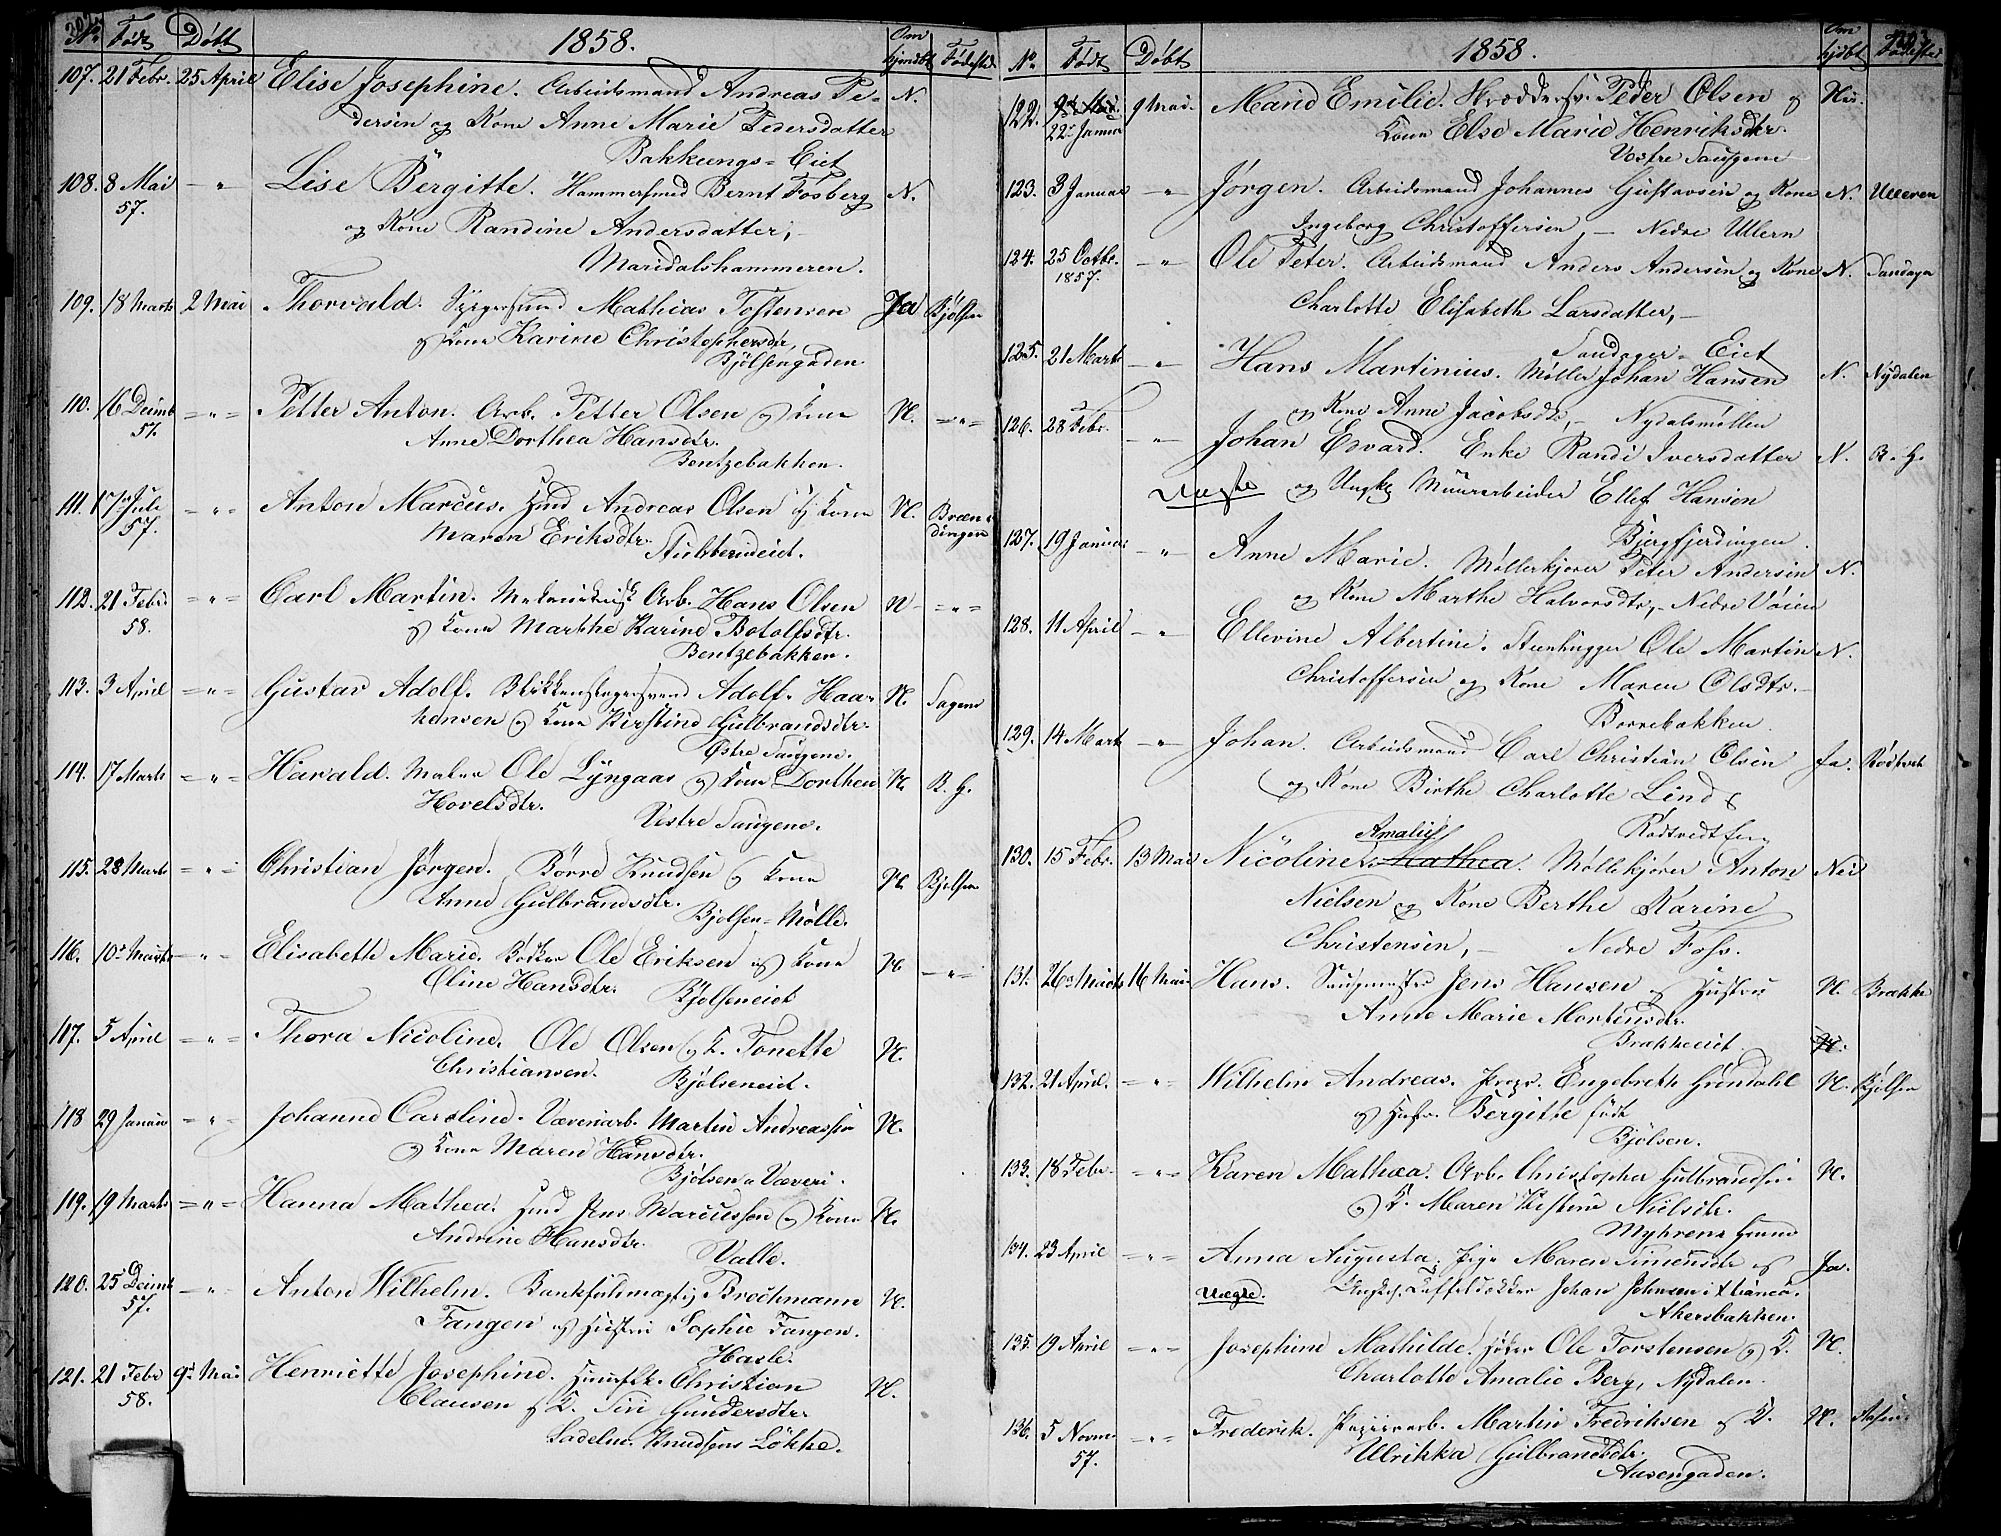 No Født Døbt 1858. Om hjemdøbt Fødested
107. 21 Febr. 25 April Elise Josephine. Arbeidsmand Andreas Pe- N.
dersen og Kone Anne Marie Pedersdatter
Bakkungs=Eiet
108. 8 Mai — " Lise Bergitte. Hammersmed Bernt Fosberg N.
57. og Kone Randine Andersdatter,
Maridalshammeren.
109. 18 Marts 2 Mai Thorvald. Mathias Tostensen Ja Bjølsen
og Kone Karine Christophersdr.
Bjølsengaden
110. 16 Decmb = " = Petter Anton. Arb. Petter Olsen og Kone N. = " =
57. Anne Dorthea Hansdtr.
Bentzebakken.
111. 17 Juli = " = Anton Marcus. Smd Andreas Olsen og Kone N. Bræn-
57. Maren Eriksdtr. dingen
Stubbereiet.
112. 21 Febr. = " = Carl Martin. Arb. Hans Olsen N = " =
58. og Kone Marthe Karine Botolfsdtr.
Bentzebakken.
113. 3 April = " = Gustav Adolf. Blikkenslagersvend Adolf Haa- N. Sagene
kensen og Kone Kirstine Gulbrandsdtr.
Østre Saugene.
114. 17 Marts = " = Harald. Maler Ole Lyngaas og Kone Dorthea N. B. H.
Hovelsdtr.
Vestre Saugene.
115. 28 Marts = " = Christian Jørgen. Børre Knudsen og Kone N. Bjølsen
Anne Gulbrandsdtr.
Bjølsen=Mølle.
116. 10 Marts — " — Elisabeth Marie. Bødker Ole Eriksen og Kone N. — " =
Oline Hansdtr.
Bjølseneiet
117. 5 April = " = Thora Nicoline. Ole Olsen og K. Tonette N.
Christiansen. Bjølseneiet.
118 29 Januar = " = Johanne Caroline. Væveriarb. Martin Andreassen N.
og Kone Maren Hansdtr.
Bjølsens Væveri.
119. 19 Marts = " = Hanna Mathea. Smd Jens Marcussen og Kone N.
Andrine Hansdtr. Valle.
120. 25 Decmb — " — Anton Wilhelm. Bankfuldmægtig Brochmann N.
57. Tangen og Hustru Sophie Tangen.
Hasle.
121. 21 Febr 9 Mai Henriette Josephine. Christian N.
58. Clausen og K. Siri Gundersdtr.
Sadelm. Knudsens Løkke.
No Født Døbt 1858. Om hjdøbt Fødested
122. 9 Mai. Marie Emilie. Skræddersv. Peder Olsen og Nei.
22 Januar Kone Else Marie Henriksdtr.
Vestre Saugene
123. 3 Januar — " — Jørgen. Arbeidsmand Johannes Gustavsen og Kone N. Ulleren
Ingeborg Christoffersen, — Nedre Ullern
124. 25 Octbr. — " — Ole Peter. Arbeidsmand Anders Andersen og Kone N. Sandager
1857. Charlotte Elisabeth Larsdatter, —
Sandager=Eiet
125. 21 Marts — " — Hans Martinius. Møller Johan Hansen N. Nydalen
og Kone Anne Jacobsdtr, — Nydalsmøllen
126. 28 Febr. — " — Johan Edvard. Enke Randi Iversdatter N. B. H.
Uægte og Ungk. Muurarbeider Ellef Hansen
Bjergfjerdingen.
127. 19 Januar — " — Anne Marie. Møllerkjører Peter Andersen N.
og Kone Marthe Halvorsdtr, — Nedre Vøien
128. 11 April — " — Ellevine Albertine. Steenhugger Ole Martin N.
Christoffersen og Kone Maren Olsdtr. —
Borrebakken
129. 14 Mart — " — Johan. Arbeidsmand Carl Christian Olsen Ja. Rødtvedt
og Kone Birthe Charlotte Lind
Rødtvedt
Amalie
130. 15 Febr. 13 Mai Nicoline Mathea. Møllekjører Anton Nei
Nielsen og Kone Berthe Karine
Christensen, — Nedre Foss.
131. 26 Marts 16 Mai Hans. Saugmester Jens Hansen og Hustru N. Brække
Anne Marie Mortensdtr.
Brækkeeiet. N.
132. 21 April. = " = Wilhelm Andreas. Propr. Engebreth Gundahl N. Bjølsen
og Hustr. Bergitte født
Bjølsen.
133. 18 Febr = " = Karen Mathea. Arb. Christopher Gulbrandsen N.
og K. Maren Kistine Nielsdtr.
Myhrens Grund
134. 23 April = " = Anna Augusta. Pige Maren Simensdtr og Ja.
Uægte. Ungk. Johan Johnsen i
Akersbakken.
135. 19 April = " = Josephine Mathilde. Ole Torstensen og K. N.
Charlotte Amalie Berg, Nydalen.
136. 5 Novmr = " = Frederik. Papiirarb. Martin Fredriksen og K. N. Aasen
57. Ulrikka Gulbrandsdtr.
Aasengaden.